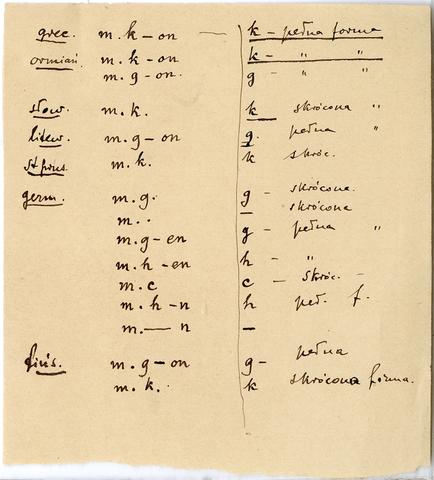 grec. m. k – on — k – pełna forma
ormiań. m. k – on k – " "
m. g – on. g " "
słow. m. k. k skrócona "
litew. m. g – on g. pełna "
st prus. m. k. k skróc.
germ. m. g. g – skrócona.
m. . – skrócona
m. g – en g – pełna "
m. h – en h – "
m. c c – skróc. –
m. h – n h peł. f.
m. — n –
fińs. m. g – on g – pełna
m. k. k skrócona forma.